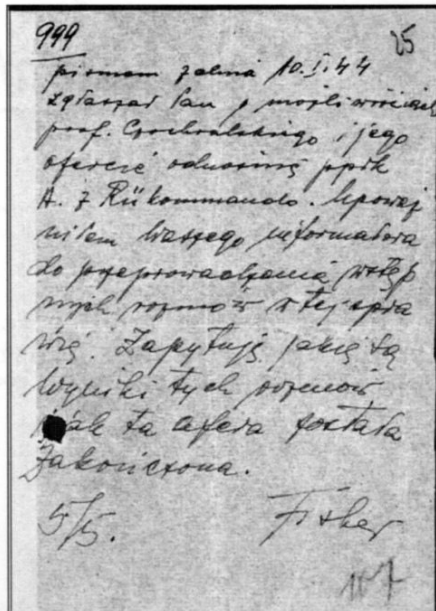 999
25
pismem z dnia 10.I.44
zgłaszał Pan o możliwościach
prof. Czochralskiego i jego
ofercie odnośnie ppłk
A. z Rükommando. Upoważ
niłem Waszego informatora
do przeprowadzenia wstęp
nych rozmów w tej spra
wie. Zapytuję jakie są
wyniki tych rozmów
i jak ta afera została
zakończona.
5/5.
Fisher